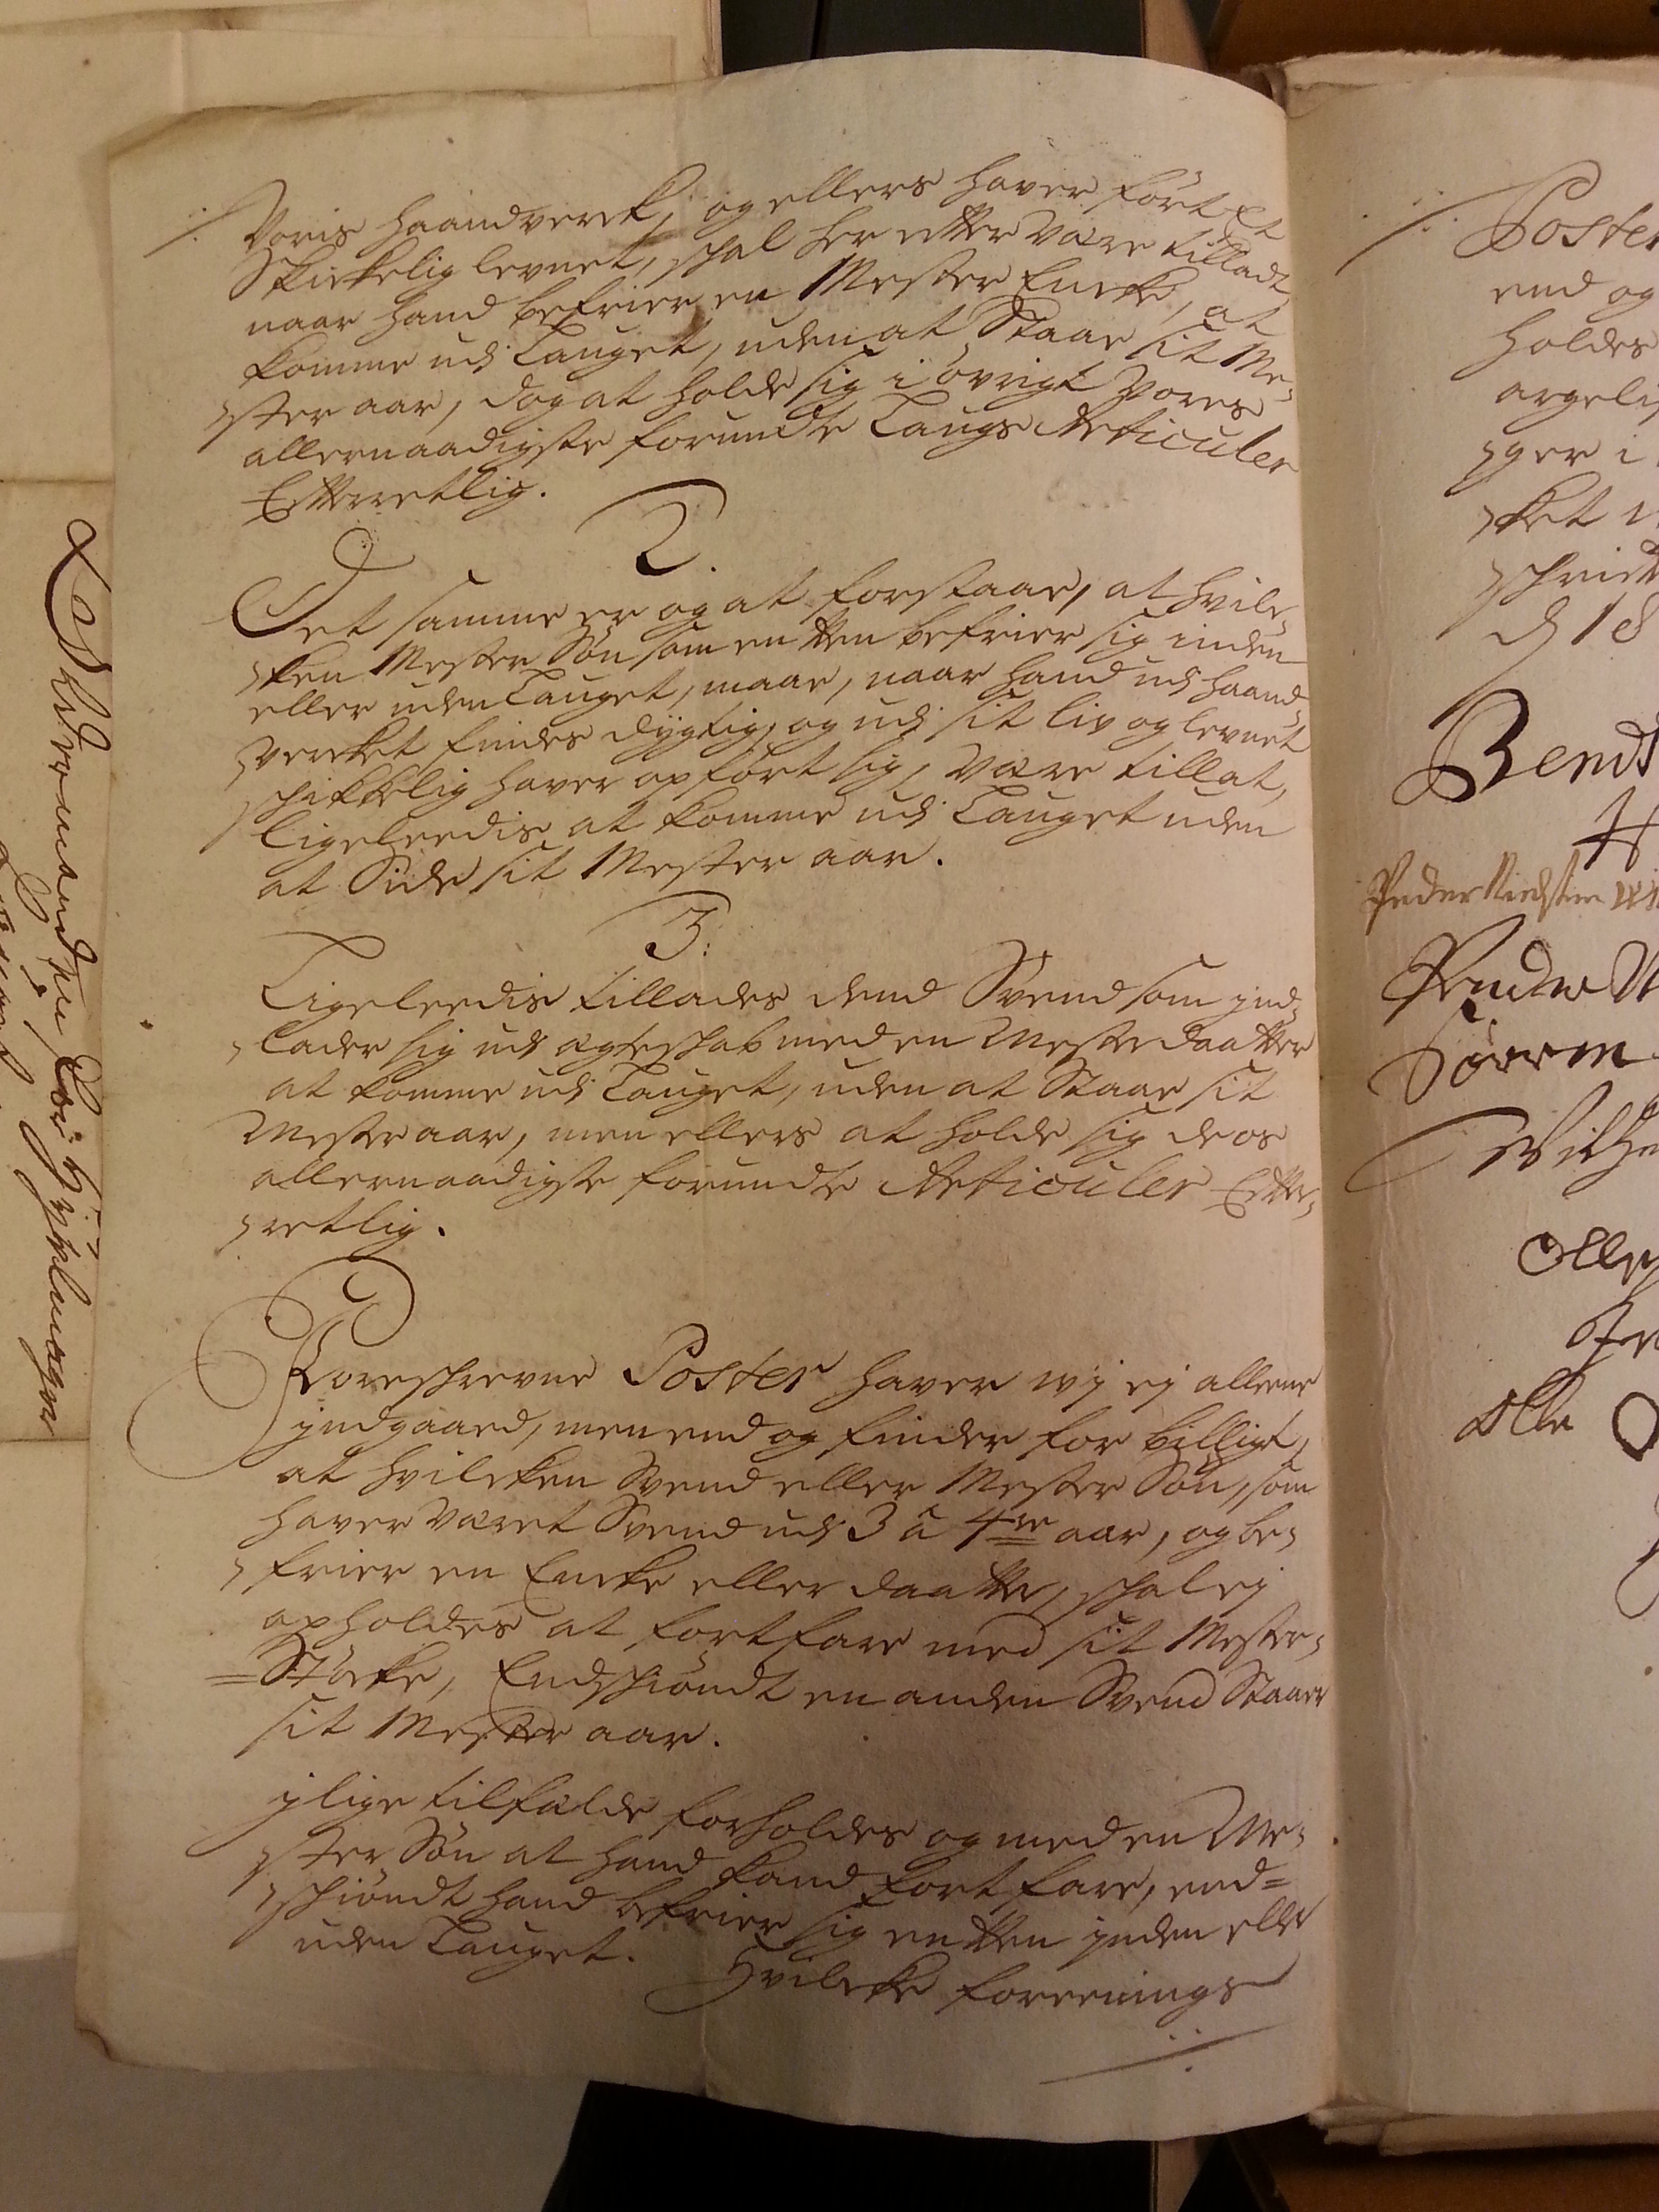 Voris haandverck, og ellers haver fört Et
Skickelig levnet, schal her etter være tilladt
naar hand befrier en Mester Encke, at
komme udj Lauget, uden at Staae sit Me-
ster aar, dog at holde sig i övrigt Vores
allernaadigste forundte Laugs Articuler
Etterretlig.
2.
Det samme er og at forstaae, at hvil-
ken Mester Sön som entten befrier sig inden
eller uden Lauget, maae, naar hand udj haand
vercket findes dygtig, og udj sit liv og levnet
schickelig haver opfört sig, være tillat,
ligeleedis at komme udj Lauget uden
at Side sit Mester aar.
3.
Ligeleedis tillades dend Svend som jnd-
lader sig udj ægteschab med en Mester daatter
at komme udj Lauget, uden at Staae sit
Mester aar, men ellers at holde sig de os
allernaadigste forundte Articuler Etter-
retlig.
Foreschrevne Poster haver wj ej alleene
jndgaaed, men end og finder for billigt,
at hvilcken Svend eller Mester Sön, som
haver været Svend udj 3 a 4re aar, og be-
frier en Encke eller daatter, schal ej
opholdes at fortfare med sit Mester-
Stöcke, Endschiöndt en anden Svend Staaer
sit Mester aar.
jlige tilfælde forholdes og med en Me-
ster Sön at hand kand fortfare, end=
schiöndt hand befrier sig entten jnden eller
uden Lauget.
Hvilcke foreenings
Poster
end og
holdes
ger i
ket
d 18
Bendt
H
Peder
Peder
Sören
Olle